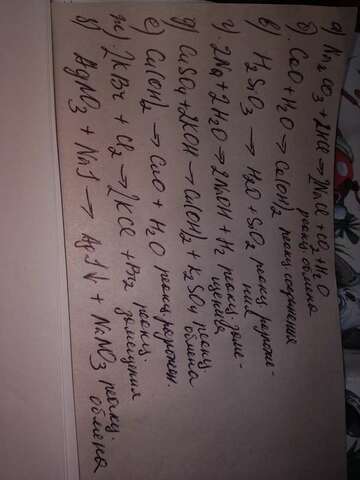 а) Na2CO3 + 2HCl → 2NaCl + CO2 + H2O
реакц обмена
б) CaO + H2O → Ca(OH)2 реакц соединения
в) H2SiO3 → H2O + SiO2 реакц разложе-
ния
г) 2Na + 2H2O → 2NaOH + H2 реакц. заме-
щения
д) CuSO4 + 2KOH → Cu(OH)2 + K2SO4 реакц
обмена
е) Cu(OH)2 → CuO + H2O реакц
ж) 2KBr + Cl2 → 2KCl + Br2 реакц.
замещения
з) AgNO3 + NaI → AgI↓ + NaNO3 реакц.
обмена